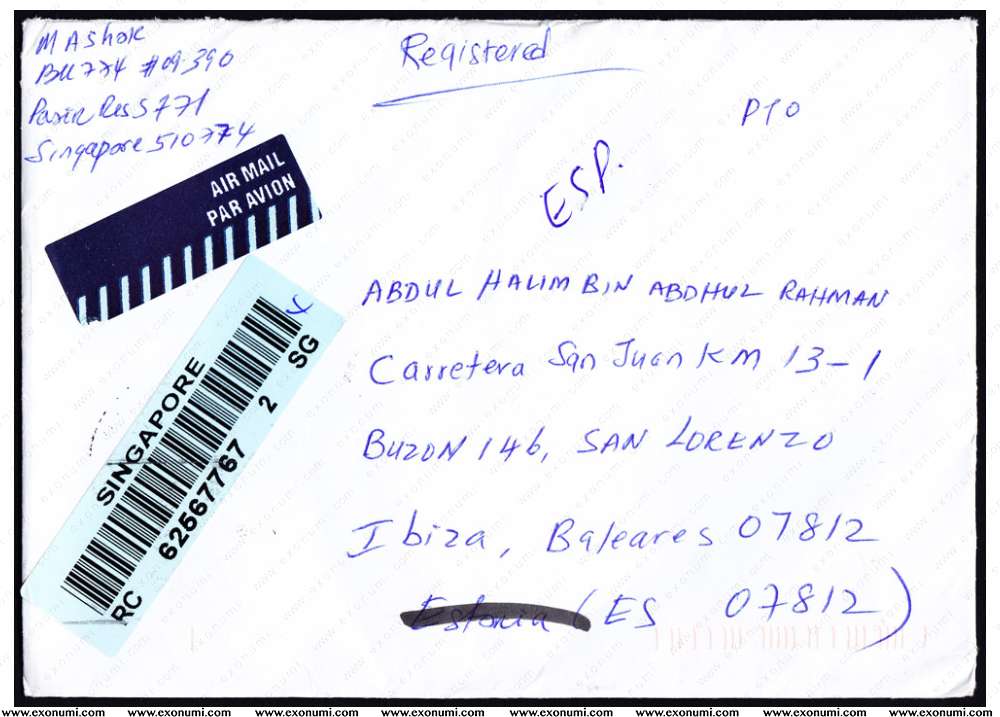 M Ashok
BLK 774 #09-390
Pasir Ris S 771
Singapore 510774
Registered
PTO
ESP.
AIR MAIL
PAR AVION
SINGAPORE
RC 62567767 2 SG
ABDUL HALIM BIN ABDHUL RAHMAN
Carretera San Juan KM 13-1
BUZON 146, SAN LORENZO
Ibiza, Baleares 07812
Estonia (ES 07812)
www.exonumi.com www.exonumi.com www.exonumi.com www.exonumi.com www.exonumi.com www.exonumi.com www.exonumi.com www.exonumi.com